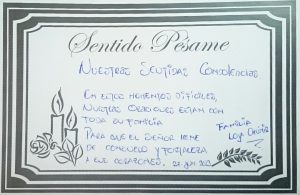 Sentido Pésame
Nuestras Sentidas Condolencias
En estos momentos difíciles,
nuestras oraciones están con
toda su familia
Para que el Señor llene
de consuelo y fortaleza
a sus corazones.
Familia